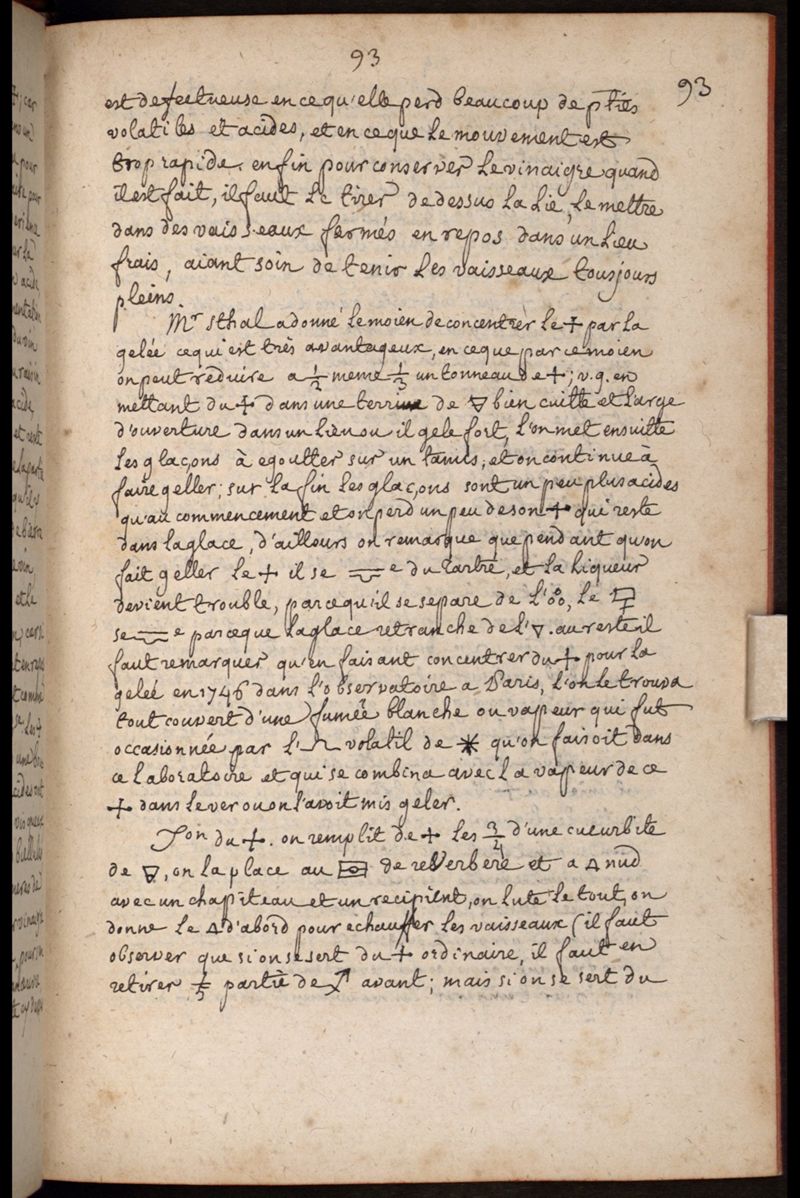 93
93
est defectueuse en ce qu'elle perd beaucoup de pties
volatiles et acides, et en ce que le mouvement est
trop rapide. enfin pour conserver le vinaigre quand
il est fait, il fault le tirer de dessus la lie, le mettre
dans des vaisseaux fermés en repos dans un lieu
frais, aiant soin de tenir les vaisseaux tousjours
pleins.
Mr Sthal a donné le moien de concentrer le + par la
gelée ce qui est très avantageux, en ce que par ce moien
on peut réduire a meme un tonneau de +; v.g. en
mettant du + dans une terrine de bien cuitte et large
d'ouverture dans un lieu ou il gele fort, l'on met ensuitte
les glaçons à egoutter sur un tamis; et on continue à
faire geller; sur la fin les glaçons sont un peu plus acides
qu'au commencement et on perd un peu de son + qui reste
dans la glace, d'ailleurs on remarque que pendant qu'on
fait geller le + il se e du tartre, et la liqueur
devient trouble, parcequ'il se separe de l'o°o, le
se e parceque la glace retranche de l'▽. au reste il
faut remarquer qu'en faisant concentrer du + pour la
gelée en 1746 dans l'observatoire a Paris, l'on le trouva
tout couvert d'une fumée blanche ou vapeur qui fut
occasionnée par l' volatil de ✱ qu'on faisoit dans
ce laboratoire et qui se combina avec la vapeur de ce
+ dans le ver ou on l'avoit mis geler.
on du +. on remplit de + les d'une cucurbite
de , on la place au de reverbere et a △ nud
avec un chapiteau et un recipient, on lute le tout, on
donne le △ d'abord pour echauffer les vaisseaux (il faut
observer que si on se sert du + ordinaire, il faut en
retirer partie de avant; mais si on se sert du